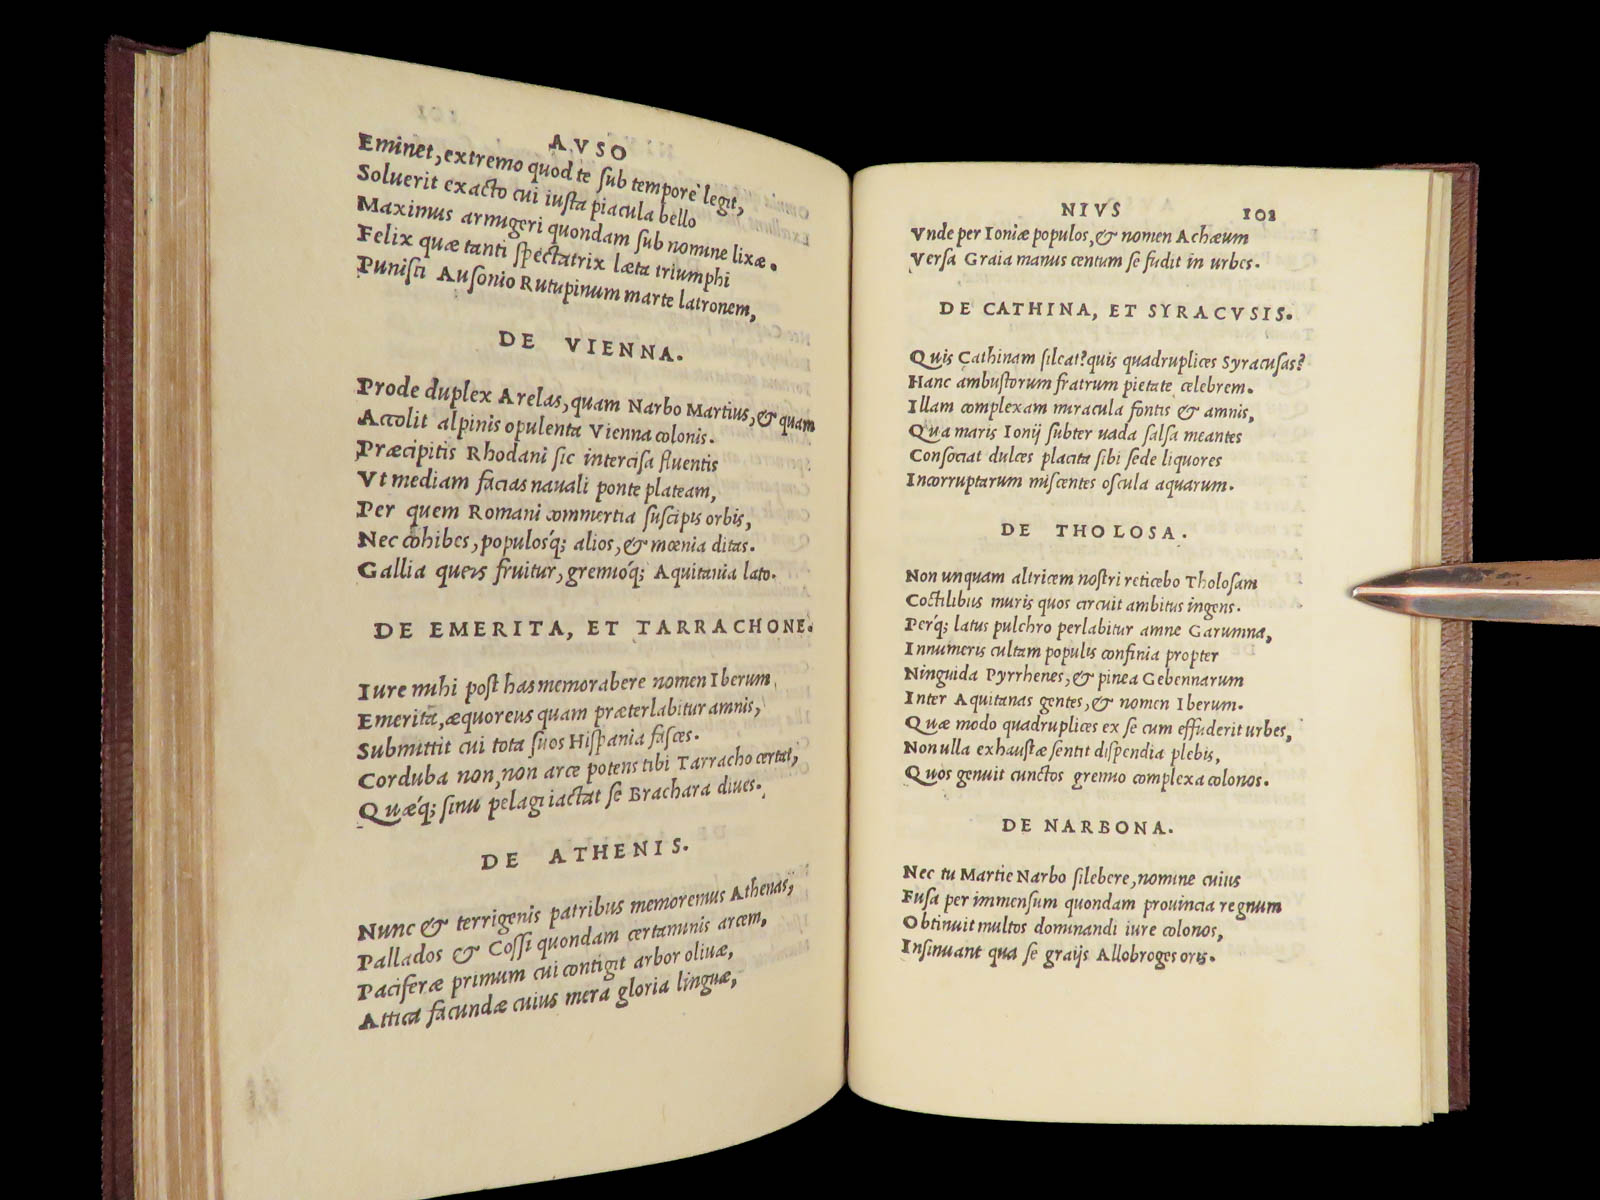 AVSO
Eminet, extremo quod te ſub tempore legit,
Soluerit exacto cui iuſta piacula bello
Maximus armugeri quondam ſub nomine lixæ.
Felix quæ tanti ſpectatrix læta triumphi
Puniſti Auſonio Rutupinum marte latronem,
DE VIENNA.
Prode duplex Arelas, quam Narbo Martius, & quam
Accolit alpinis opulenta Vienna colonis.
Præcipitis Rhodani ſic interciſa fluentis
Vt mediam facias nauali ponte plateam,
Per quem Romani commertia ſuſcipis orbis,
Nec cohibes, populosq́; alios, & mœnia ditas.
Gallia queis fruitur, gremioq́; Aquitania lato.
DE EMERITA, ET TARRACHONE.
Iure mihi poſt has memorabere nomen Iberum
Emerita, æquoreus quam præterlabitur amnis,
Submittit cui tota ſuos Hiſpania faſces.
Corduba non, non arce potens tibi Tarracho certat,
Quæq́; ſinu pelagi iactat ſe Brachara diues.
DE ATHENIS.
Nunc & terrigenis patribus memoremus Athenas,
Pallados & Coſſi quondam certaminis arcem,
Paciferæ primum cui contigit arbor oliuæ,
Attica facundæ cuius mera gloria linguæ,
NIVS 102
Vnde per Ioniæ populos, & nomen Achæum
Verſa Graia manus centum ſe fudit in urbes.
DE CATHINA, ET SYRACVSIS.
Quis Cathinam ſileat? quis quadruplices Syracuſas?
Hanc ambuſtorum fratrum pietate celebrem.
Illam complexam miracula fontis & amnis,
Qua maris Ionij ſubter uada ſalſa meantes
Conſociat dulces placita ſibi ſede liquores
Incorruptarum miſcentes oſcula aquarum.
DE THOLOSA.
Non unquam altricem noſtri reticebo Tholoſam
Coctilibus muris quos circuit ambitus ingens.
Perq́; latus pulchro perlabitur amne Garumna,
Innumeris cultam populis confinia propter
Ninguida Pyrrhenes, & pinea Gebennarum
Inter Aquitanas gentes, & nomen Iberum.
Quæ modo quadruplices ex ſe cum effuderit urbes,
Non ulla exhauſtæ ſentit diſpendia plebis,
Quos genuit cunctos gremio complexa colonos.
DE NARBONA.
Nec tu Martie Narbo ſilebere, nomine cuius
Fuſa per immenſum quondam prouincia regnum
Obtinuit multos dominandi iure colonos,
Inſinuant qua ſe graijs Allobroges oris.